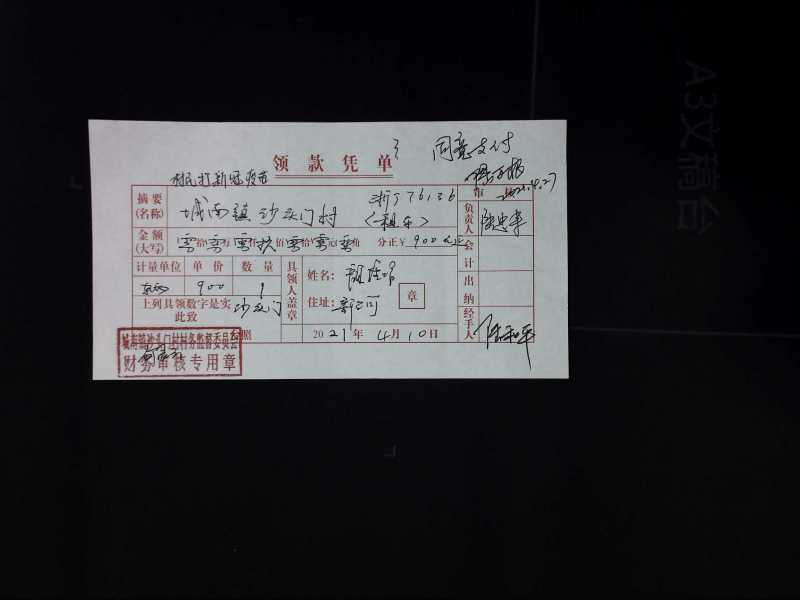 同意支付
领款凭单
村民打新冠疫苗
2021.4.27
摘要(名称) 城南镇沙头门村 浙J76136 (租车) 负责人
金额(大写) 零拾零万零仟玖佰零拾零元零角 分正¥900元正 会计
计量单位 单价 数量 具领人盖章 姓名: 章
900 1 住址:新河 出纳
上列具领数字是实 沙头门
此致 经手人
台照 2021年4月10日
城南镇沙头门村村务监督委员会
财务审核专用章
A3文稿台